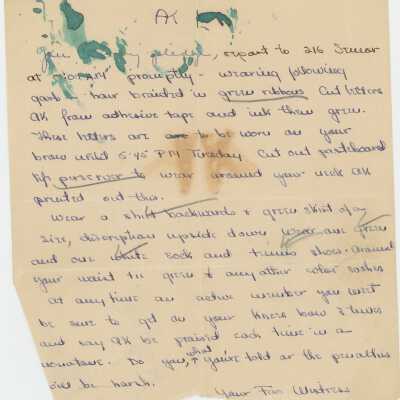 AK
You, my pledge, report to 216 Senior
at 7:00 PM promptly - wearing following
garb - hair braided in green ribbons Cut letters
AK from adhesive tape and ink them green.
These letters are to be worn on your
brow until 5:45 PM Tuesday. Cut out pasteboard
life preserver to wear around your neck AK
printed out this.
Wear a shirt backwards & green skirt of any
size, description upside down wear one green
and one white sock and tennis shoes. Around
your waist tie green & any other color sashes
at any time an active member you meet
be sure to get on your knees bow 3 times
and say AK be praised each time in a
monotone. Do you, what you're told or the penalties
will be harsh.
Your Fair Mistress